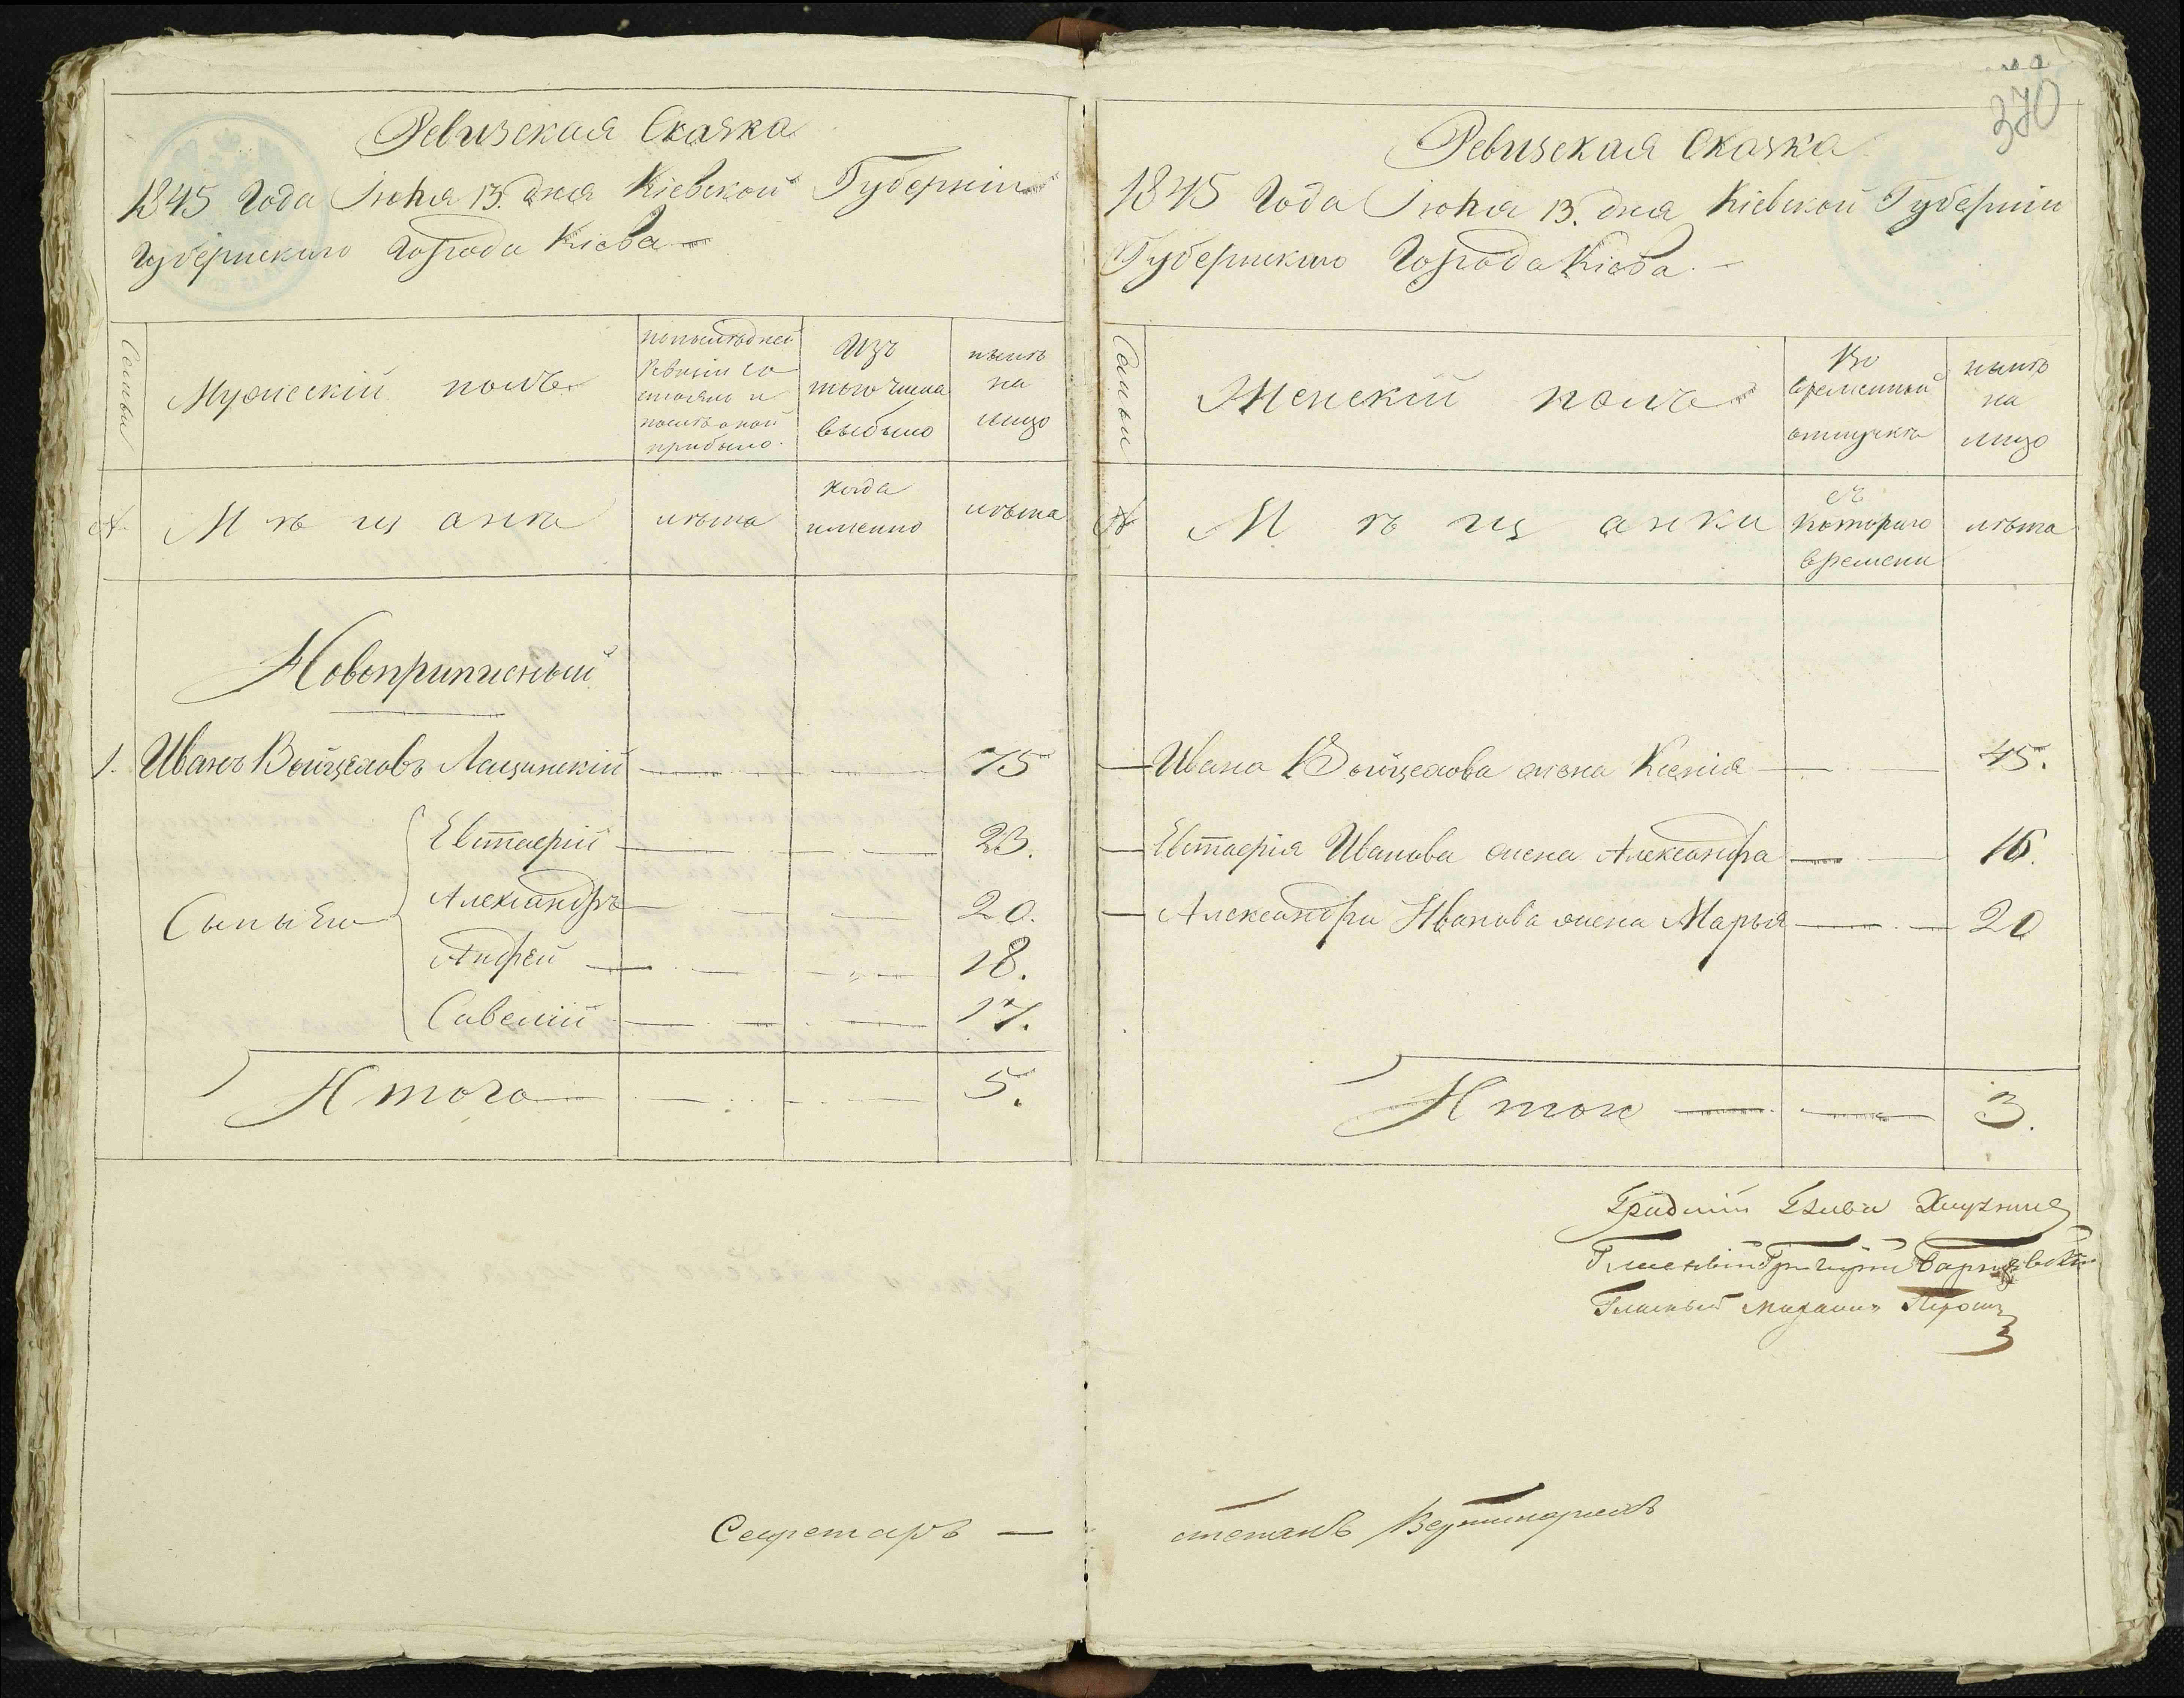 Ревизская Сказка
1845 Года Іюня 13. дня Кіевской Губерніи
Губернского Города Кіева
Семьи
Мужескій полъ
По последней ревизіи состояло и после оной прибыло
Изъ того числа выбыло
ныне на лицо
№
Мѣщане
лѣта
когда именно
лѣта
Новоприписный
1. Иванъ Войцеховъ Лащинскій 75
Сыны Его
Евстафій 23.
Александръ 20.
Андрей 18.
Савелій 17.
Итого 5.
Секретарь
370
Ревизская Сказка
1845 Года Іюня 13. дня Кіевской Губерніи
Губернского Города Кіева.
Семьи
Женскій полъ
Во временной отлучке
ныне на лицо
№
Мѣщанки
съ которого времени
лѣта
Ивана Войцехова жена Ксенія 45.
Евстафія Иванова жена Александра 16.
Александра Иванова жена Марья 20
Итого 3.
Градскій Глава
Гласный Григорій
Гласный Михаилъ
Степанъ